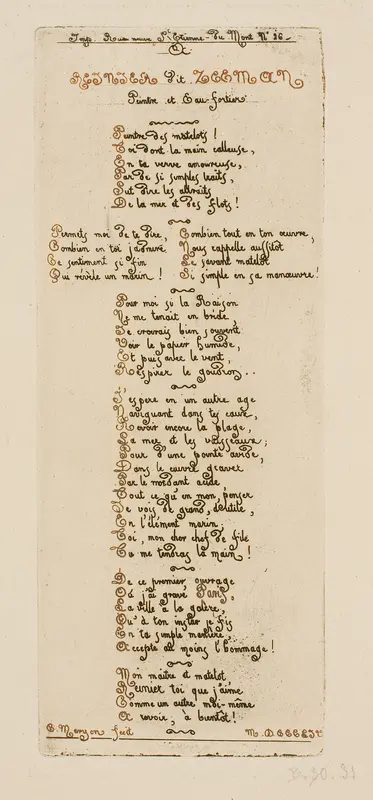 Imp. Rue neuve St Etienne-du Mont No 26.
A
REINIER dit ZEEMAN
Peintre et Eau-fortier.
Peintre des matelots !
Toi dont la main calleuse,
En ta verve amoureuse,
Par de si simples traits,
Sut dire les attraits
De la mer et des flots !
Permets moi de te dire,
Combien en toi j'admire
Ce sentiment si fin
Qui révèle un marin !
Combien tout en ton œuvre,
Nous rappelle aussitôt
Le savant matelot
Si simple en sa manœuvre !
Pour moi si la Raison
Ne me tenait en bride,
Je croirais bien souvent
Voir le papier humide,
Et puis avec le vent,
Respirer le goudron . .
J'espere en un autre age
Naviguant dans tes eaux,
Revoir encore la plage,
La mer et les vaisseaux ;
Pour d'une pointe avide,
Dans le cuivre graver
Par le mordant acide
Tout ce qu'en mon penser
Je vois de grand, d'utile,
En l'élément marin.
Toi, mon cher chef de file
Tu me tendras la main !
De ce premier ouvrage
Où j'ai gravé Paris,
La ville à la galère,
Qu'à ton instar je fis
En ta simple manière
Accepte au moins l'hommage !
Mon maitre et matelot,
Reinier toi que j'aime
Comme un autre moi-même
Au revoir, à bientôt !
C. Meryon fecit
M. DCCCLIV